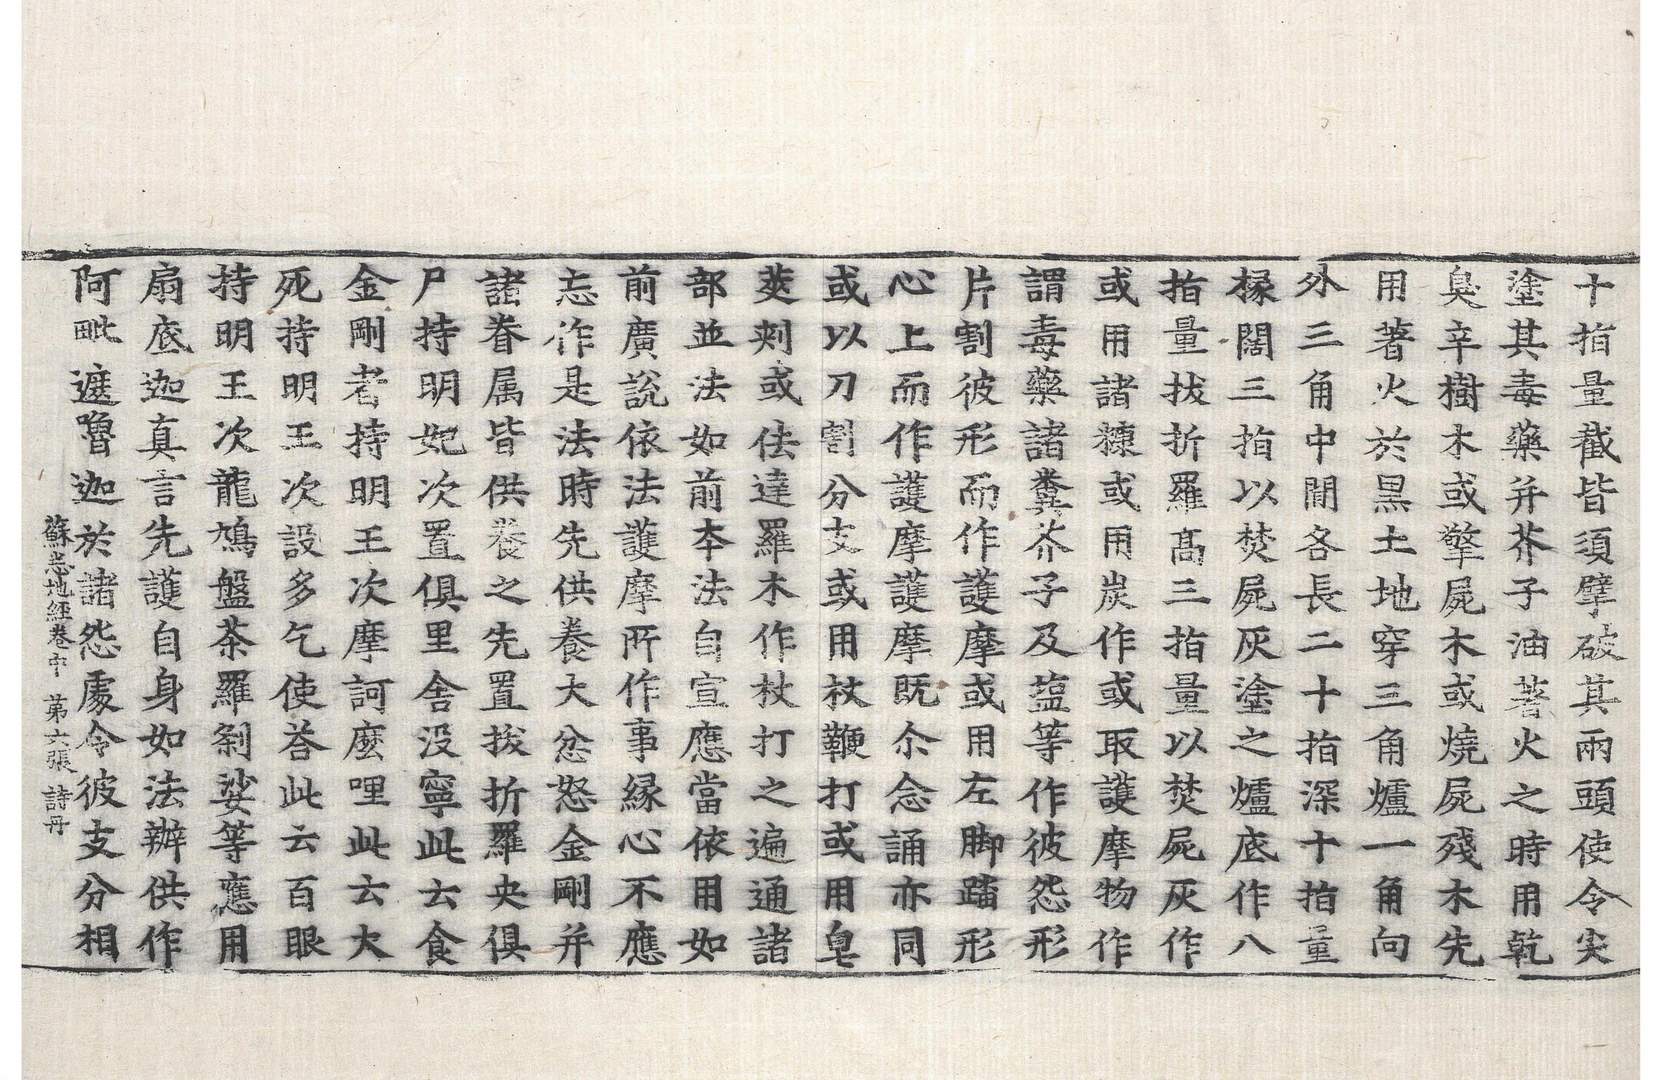 十指量截皆須擘破其兩頭使令尖
塗其毒藥并芥子油著火之時用乾
臭辛樹木或擎屍木或燒屍殘木先
用著火於黑土地穿三角爐一角向
外三角中閒各長二十指深十指量
椽闊三指以焚屍灰塗之爐底作八
指量拔折羅高三指量以焚屍灰作
或用諸糠或用炭作或取護摩物作
謂毒藥諸糞芥子及塩等作彼怨形
片割彼形而作護摩或用左脚踏形
心上而作護摩護摩既尒念誦亦同
或以刀割分支或用杖鞭打或用皂
莢刺或佉達羅木作杖打之遍通諸
部並法如前本法自宣應當依用如
前廣說依法護摩所作事緣心不應
忘作是法時先供養大忿怒金剛并
諸眷属皆供養之先置拔折羅央俱
尸持明妃次置俱里舍没寧此云食
金剛者持明王次摩訶麼哩此云大
死持明王次設多乞使荅此云百眼
持明王次龍鳩盤茶羅剎娑等應用
扇底迦真言先護自身如法辦供作
阿毗遮嚕迦於諸怨處令彼支分相
蘇悉地經卷中 第六張 詩冊